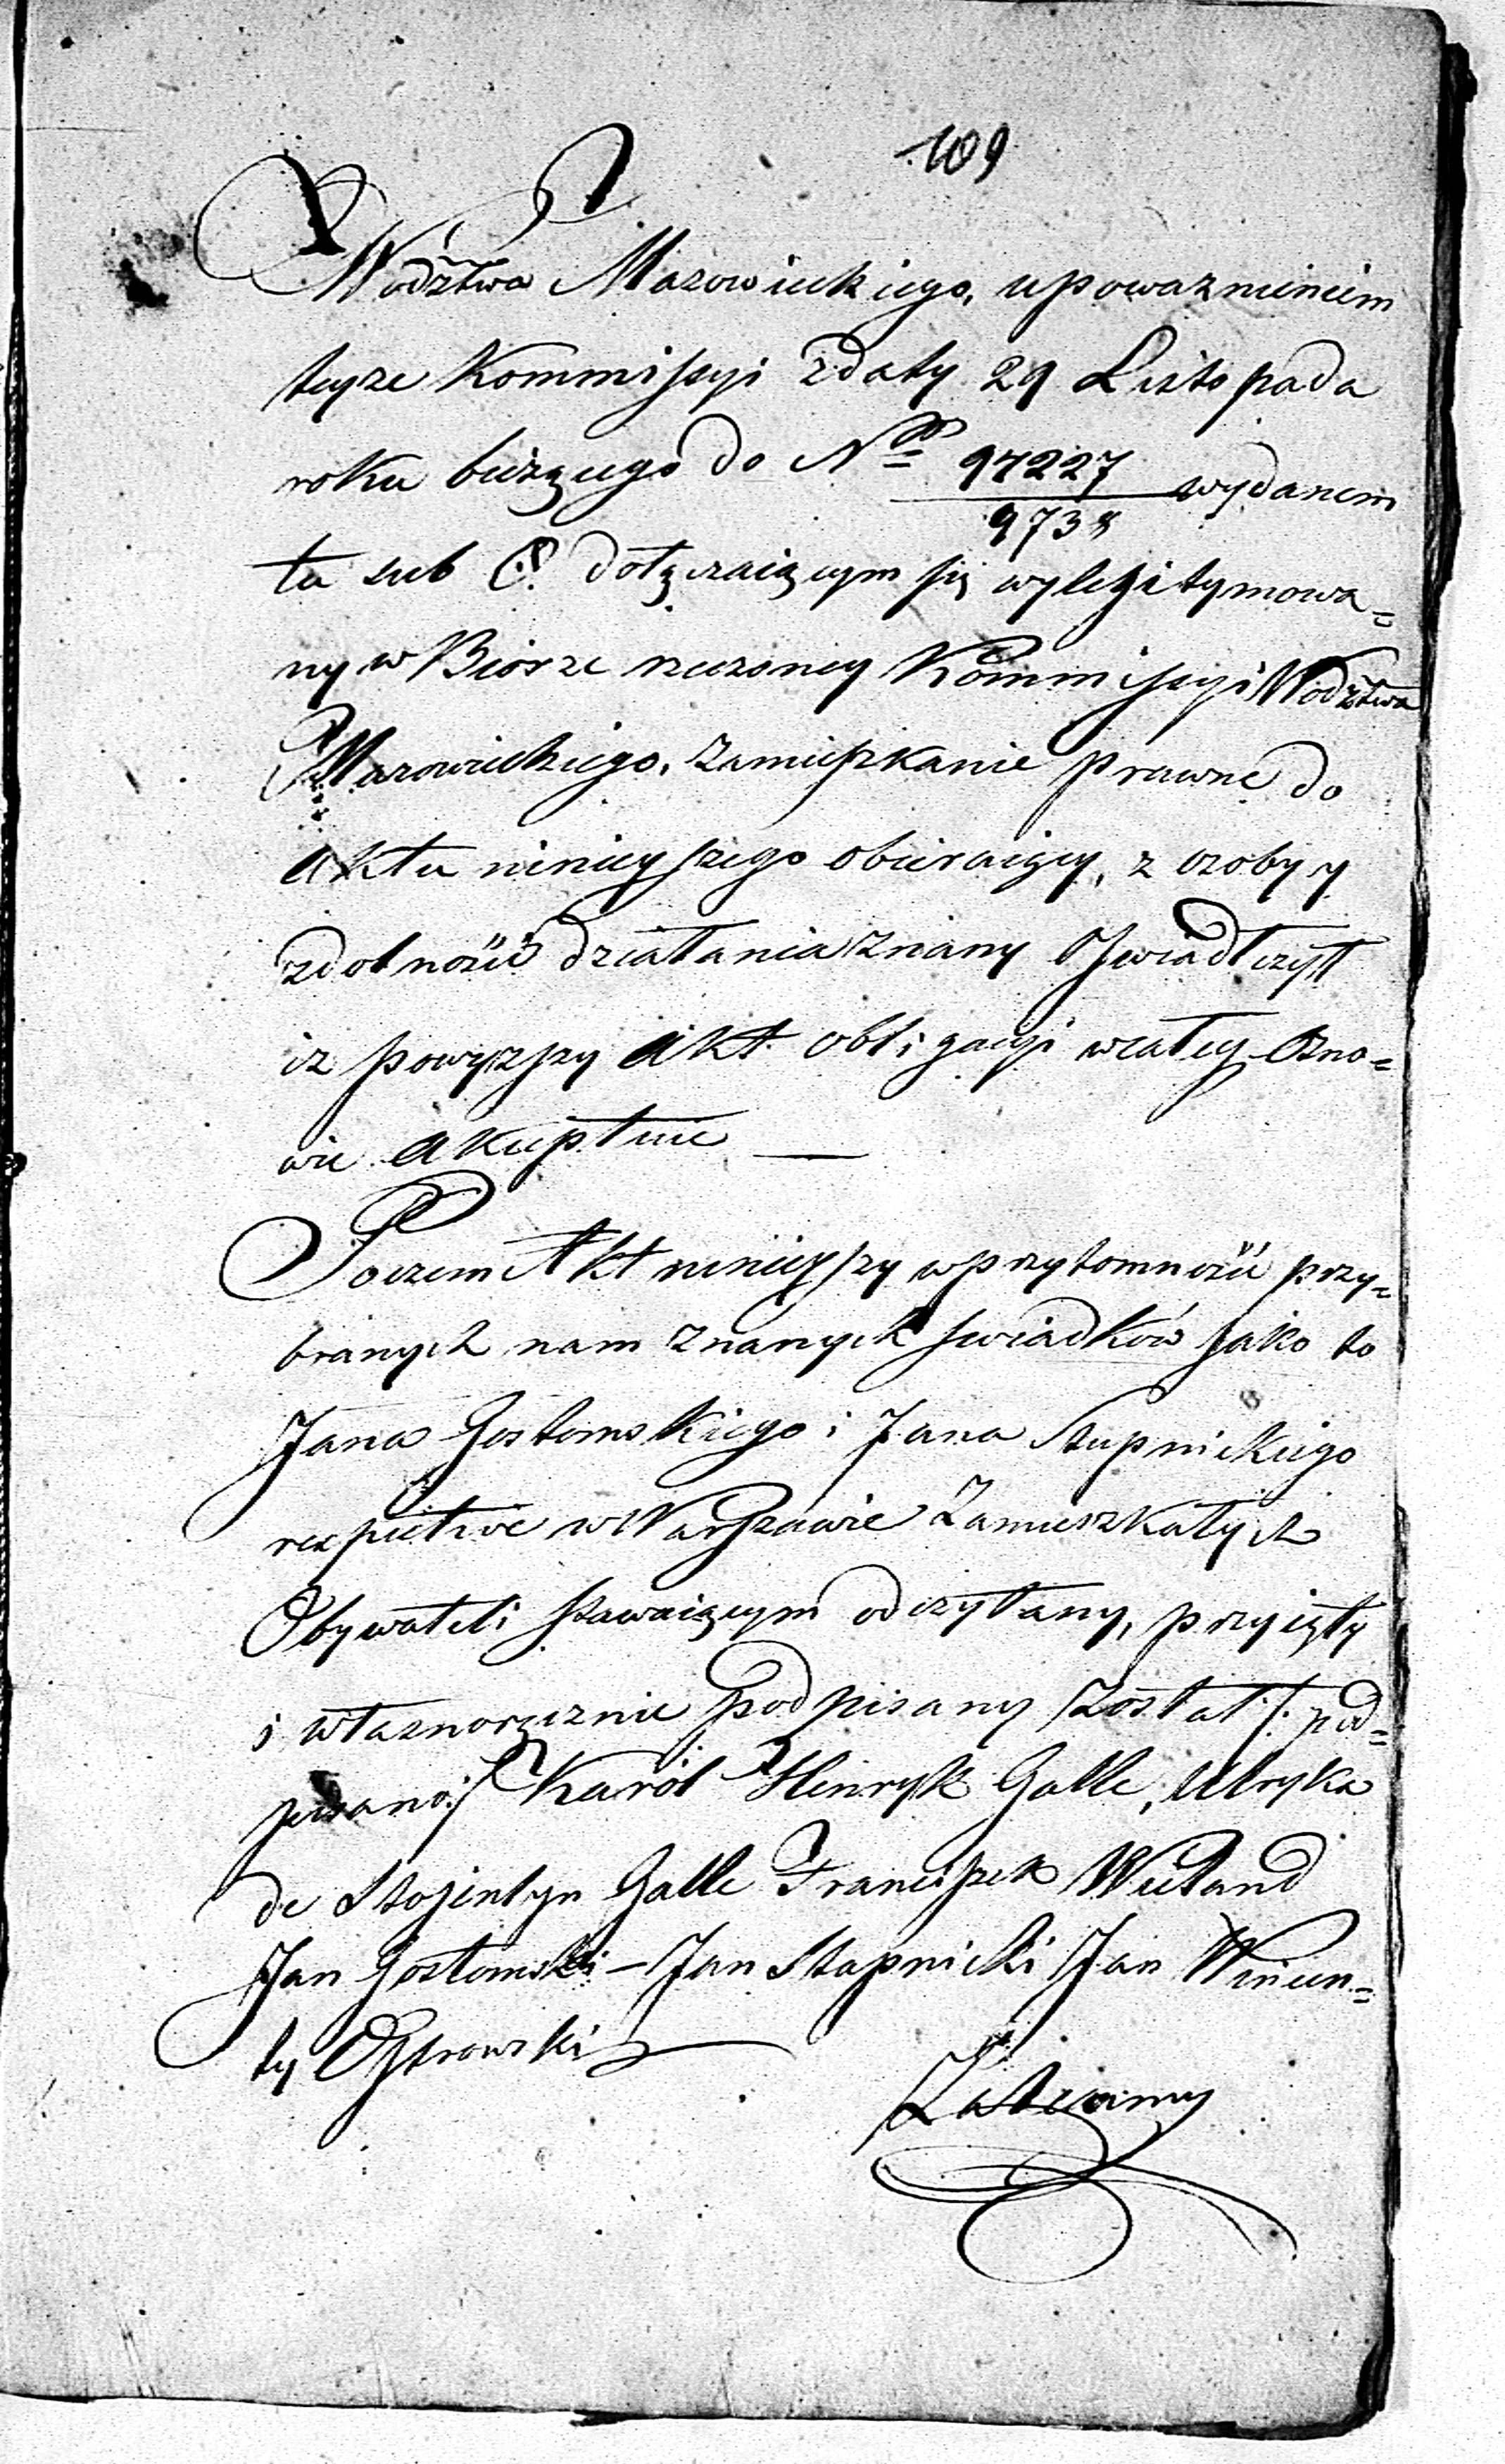 109
Wodztwa Mazowieckiego, upoważnieniem
teyże Kommissyi zdaty 29 Listopada
roku bieżącego do Nro 97227/9738 wydanem
tu sub C. dołączaiącym się wylegitymowa=
ny w Biorze rzeczoney Kommissyi Wodztwa
Mazowieckiego, zamieszkanie prawne do
aktu ninieyszego obieraiący, z osoby y
zdolności działania znany Oswiadczył
iz powyższy akt obligacyi wcałey Osno=
wie akceptuie —
Poczem Akt ninieyszy wprzytomności przy=
branych nam znanych swiadków jako to
Jana Gostomskiego i Jana Stupnickiego
respective w Warszawie Zamieszkałych
Obywateli stawaiącym odczytany, przyięty
i własnoręcznie podpisany został /: pod=
pisano :/ Karól Henryk Galle, Ulryka
de Stojentyn Galle Franciszek Wieland
Jan Gostomski – Jan Stupnicki Jan Wincen=
ty Ostrowski